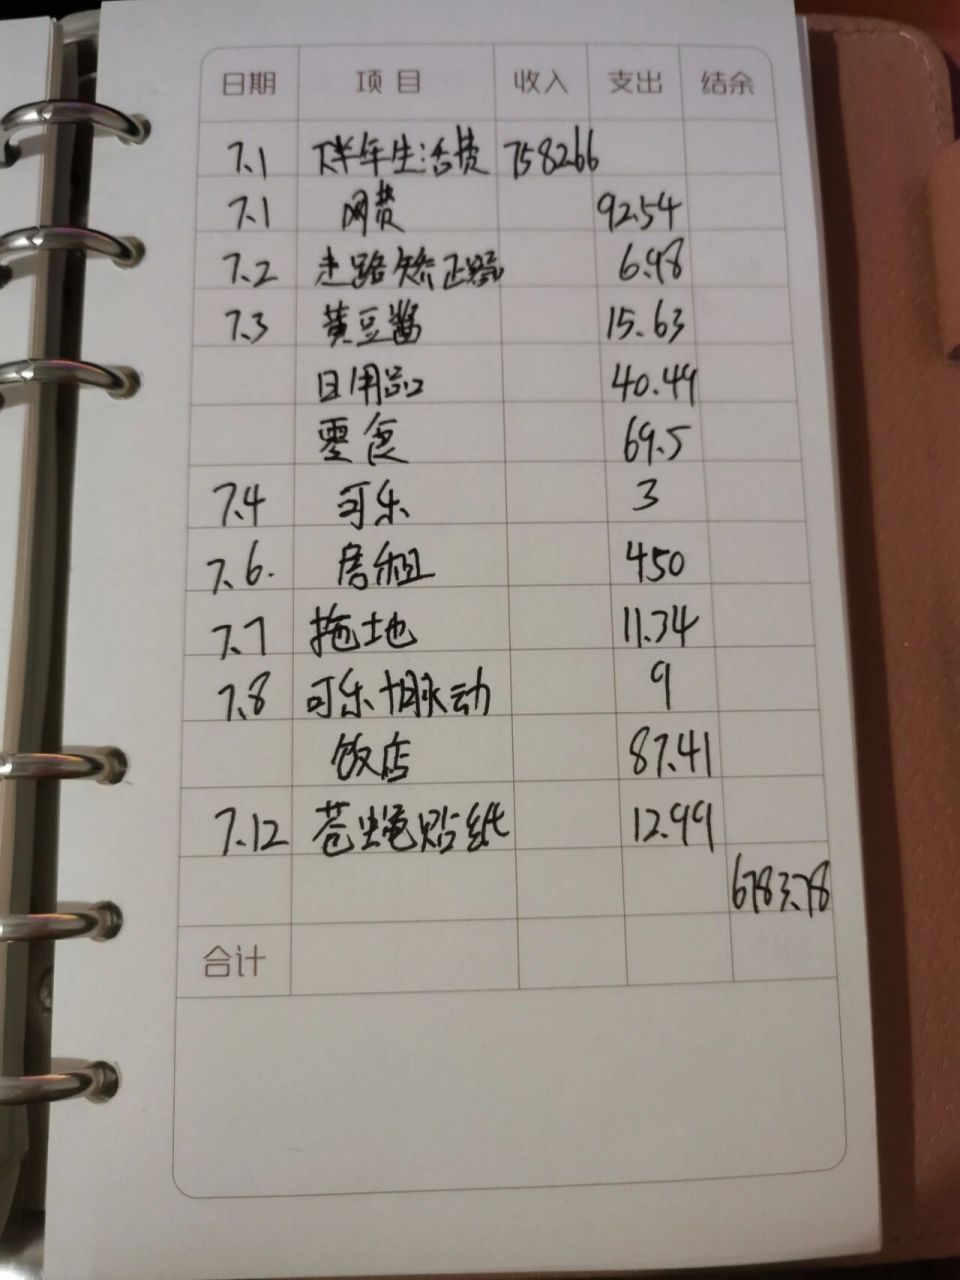 日期 项目 收入 支出 结余
7.1 下半年生活费 7582.66
7.1 网费 92.54
7.2 走路矫正器 6.98
7.3 黄豆酱 15.63
日用品 40.49
零食 69.5
7.4 可乐 3
7.6. 房租 450
7.7 拖地 11.34
7.8 可乐+脉动 9
饭店 87.41
7.12 苍蝇贴纸 12.99
6783.78
合计